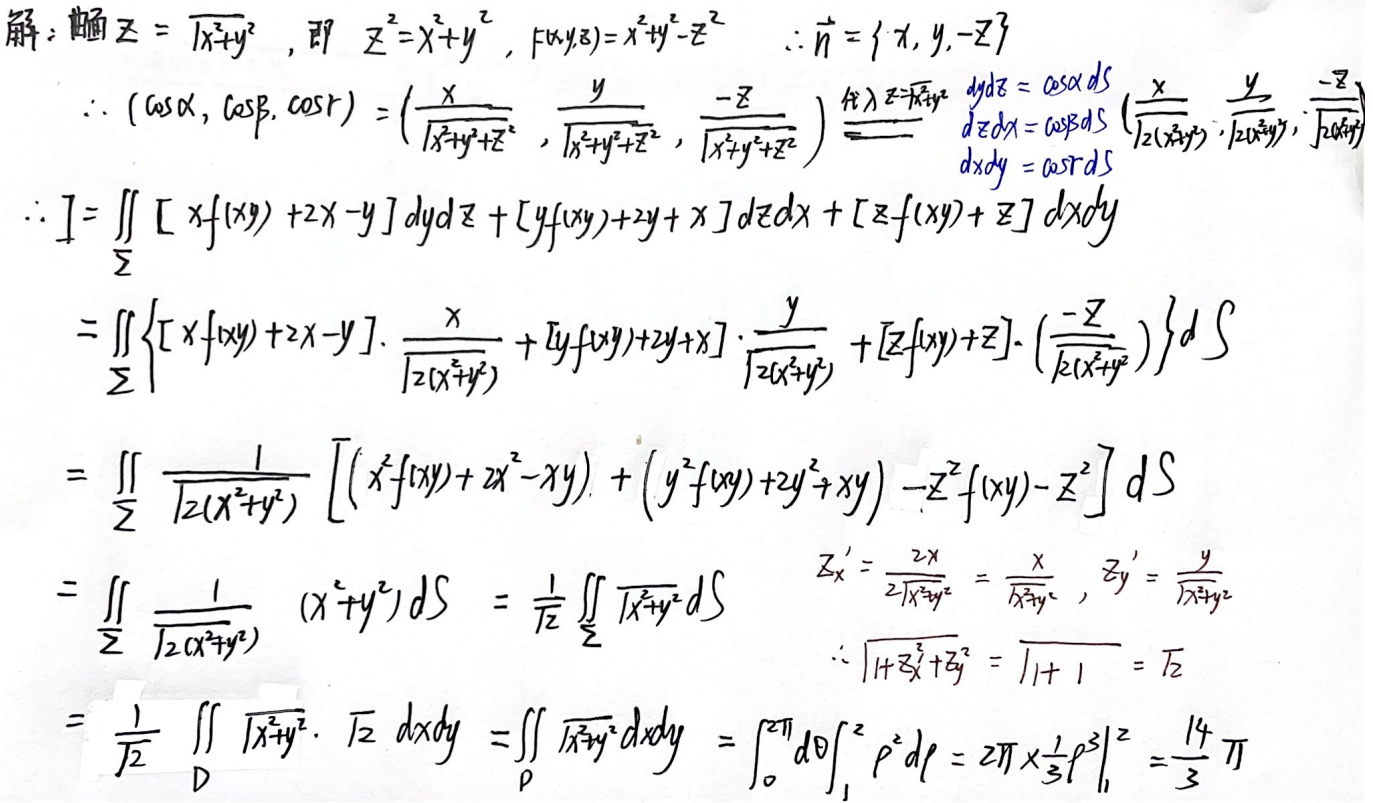 解: 曲面 z = √(x²+y²), 即 z²=x²+y², F(x,y,z)=x²+y²-z² ∴ n⃗ = {x, y, -z}
∴ (cosα, cosβ, cosr) = (x/√(x²+y²+z²), y/√(x²+y²+z²), -z/√(x²+y²+z²)) 代入 z=√(x²+y²) (x/√(2(x²+y²)), y/√(2(x²+y²)), -z/√(2(x²+y²)))
dydz = cosαdS
dzdx = cosβdS
dxdy = cosrdS
∴ I = ∬_Σ [xf(xy)+2x-y]dydz + [yf(xy)+2y+x]dzdx + [zf(xy)+z]dxdy
= ∬_Σ {[xf(xy)+2x-y]·x/√(2(x²+y²)) + [yf(xy)+2y+x]·y/√(2(x²+y²)) + [zf(xy)+z]·(-z/√(2(x²+y²)))}dS
= ∬_Σ 1/√(2(x²+y²)) [(x²f(xy)+2x²-xy) + (y²f(xy)+2y²+xy) -z²f(xy)-z²] dS
= ∬_Σ 1/√(2(x²+y²)) (x²+y²)dS = 1/√2 ∬_Σ √(x²+y²) dS
z'x = 2x/(2√(x²+y²)) = x/√(x²+y²), z'y = y/√(x²+y²)
∴ √(1+z'x²+z'y²) = √(1+1) = √2
= 1/√2 ∬_D √(x²+y²)·√2 dxdy = ∬_D √(x²+y²) dxdy = ∫₀^2π dθ∫₁² ρ²dρ = 2π×1/3ρ³|₁² = 14/3 π